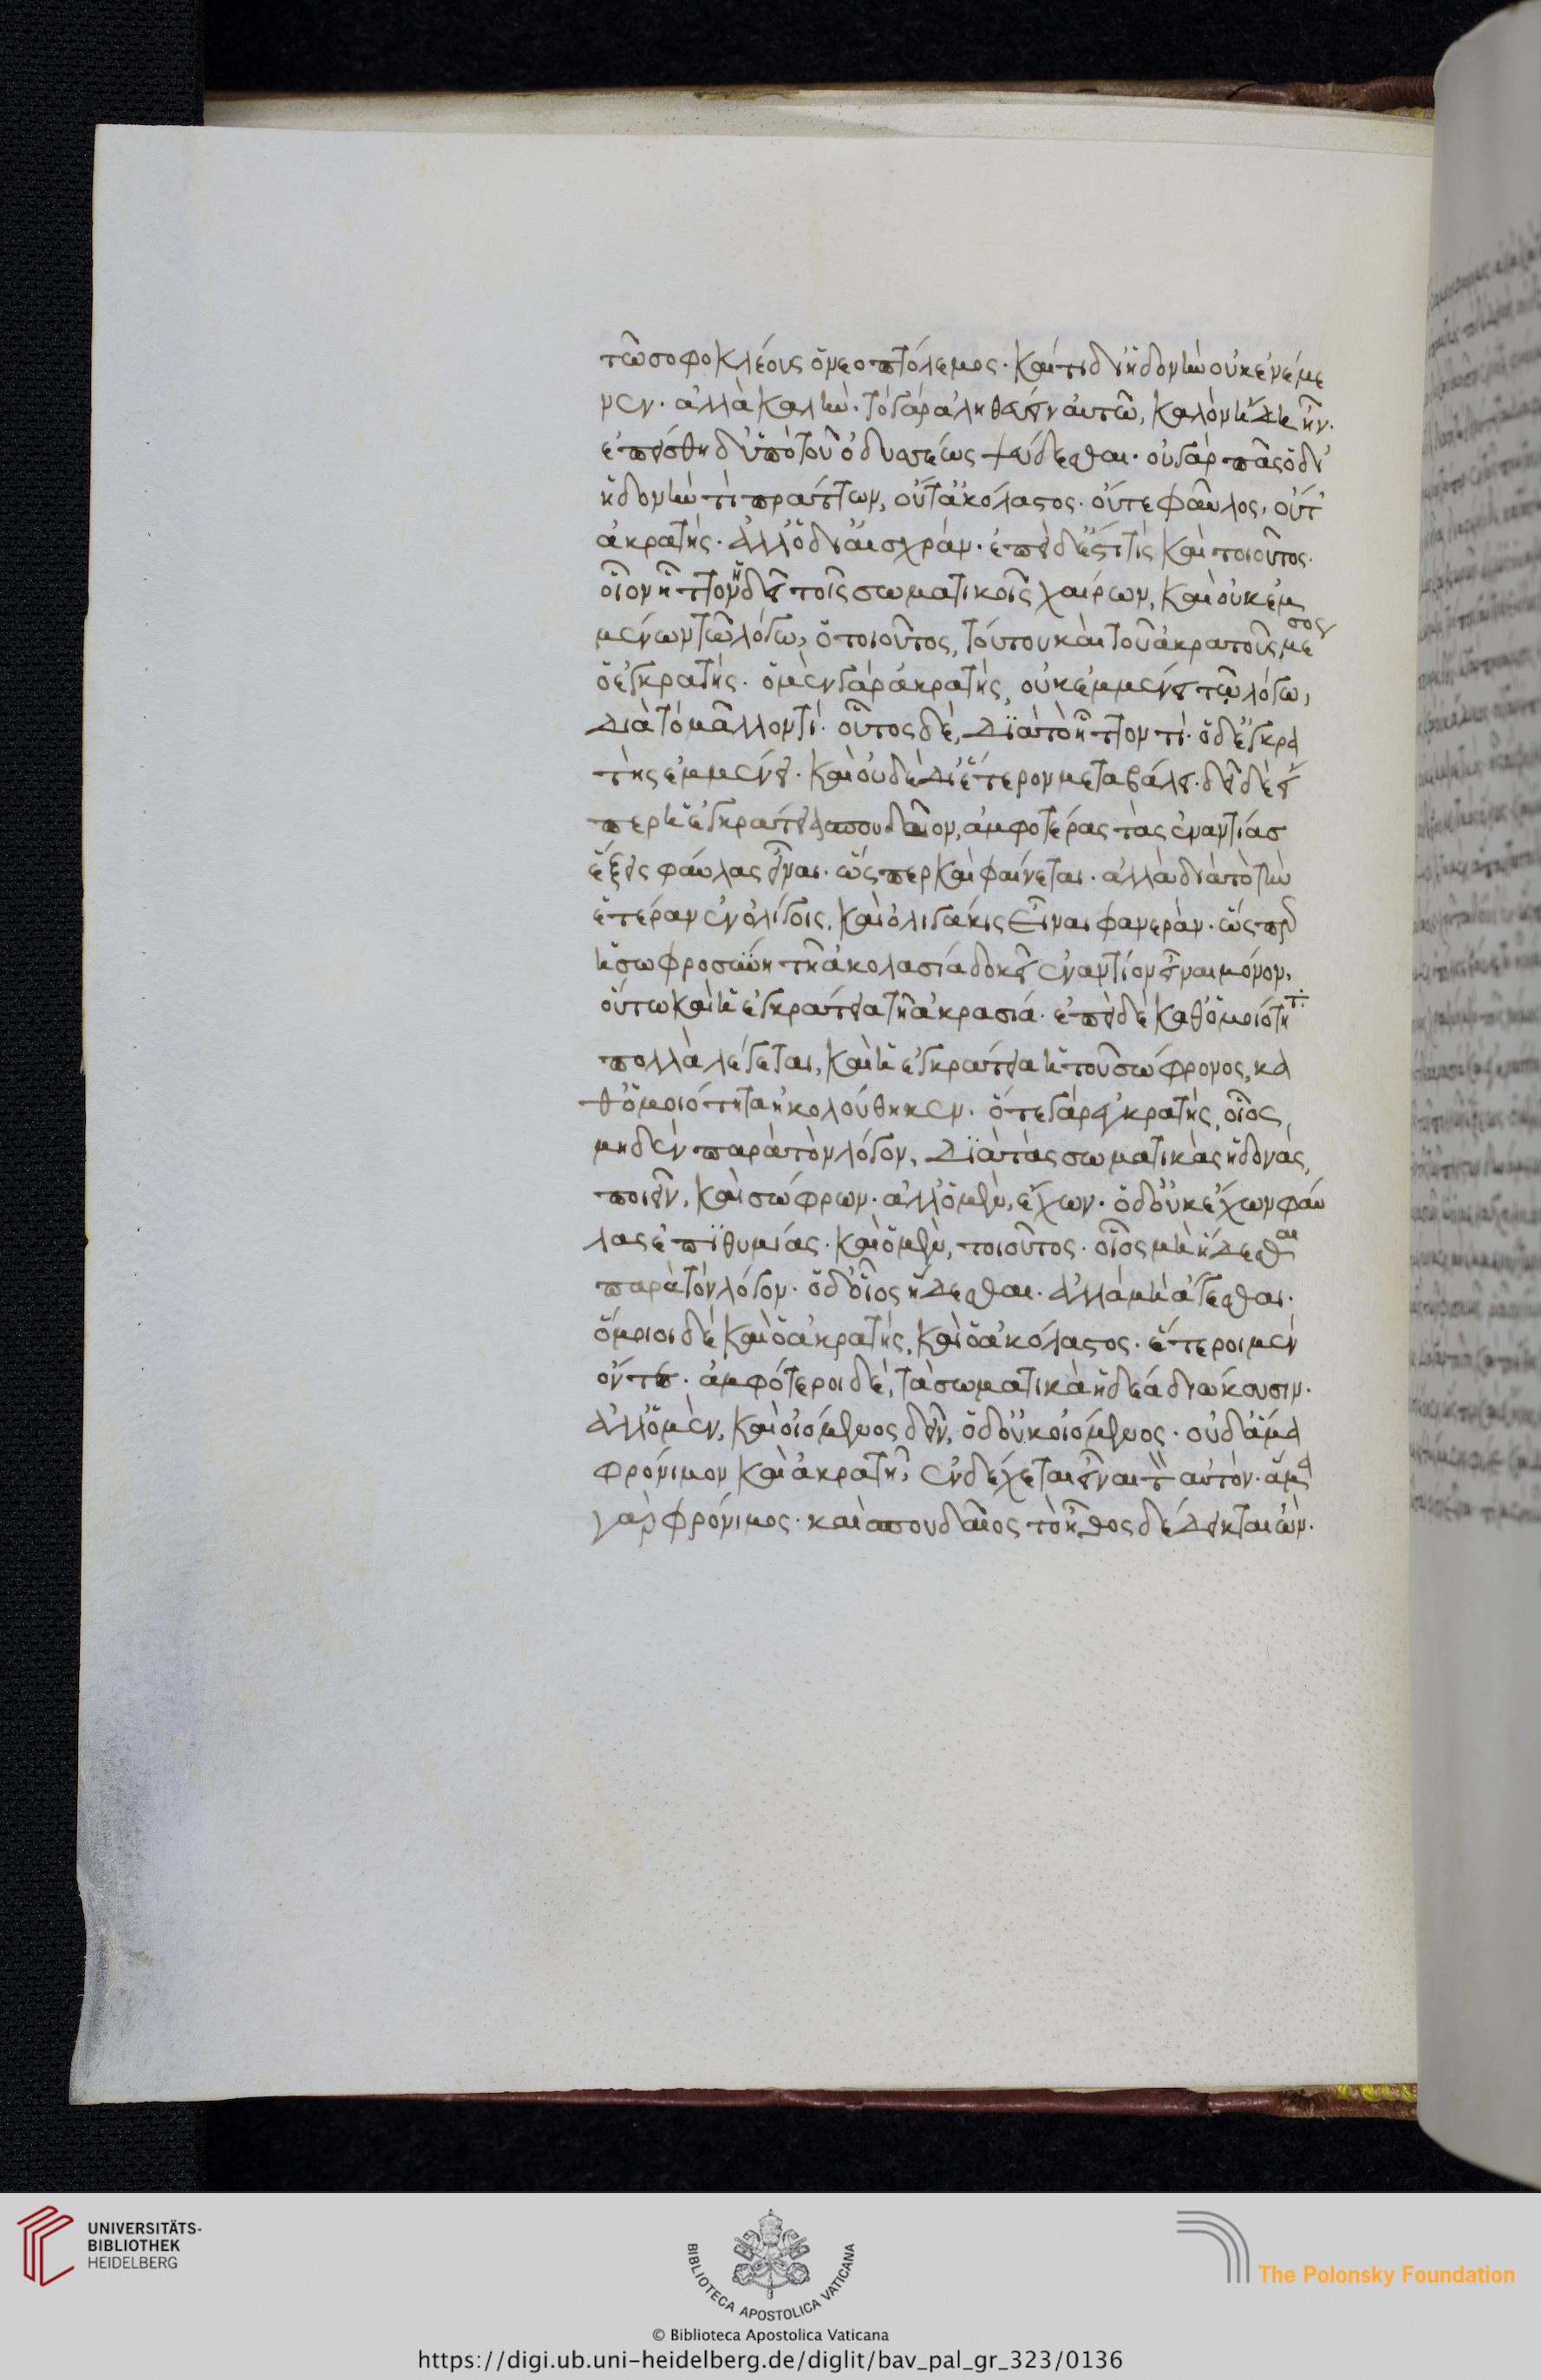 τῶ σοφοκλέους ὁ νεοπτόλεμος. καί τι δι ἡδονὴν οὐκ ἐνέμε
νεν. ἀλλὰ καλήν. τὸ γὰρ ἀληθεύειν αὐτῶ, καλὸν ἡδὺ ἦν.
ἐπείσθη δ' ὑπὸ τοῦ ὀδυσσέως ψεύδεσθαι. οὐ γὰρ πᾶς ὁ δι'
ἡδονήν τι πράττων, οὔτ' ἀκόλαστος. οὔτε φαῦλος, οὔτ'
ἀκρατής. ἀλλ' ὁ δι αἰσχράν. ἐπεὶ δ' ἔστί τίς καὶ τοιοῦτος.
οἷον ἧττον ἢ δεῖ τοῖς σωματικοῖς χαίρων, καὶ οὐκ ἐμ
μένων τῶ λόγω, ὁ τοιοῦτος, τούτου καὶ τοῦ ἀκρατοῦς, μέσος
ὁ ἐγκρατής. ὁ μὲν γὰρ ἀκρατής, οὐκ ἐμμένει τῶ λόγω,
διὰ τὸ μᾶλλον τί. οὗτος δὲ, διὰ τὸ ἧττον τί. ὁ δ' ἐγκρα
τὴς ἐμμένει. καὶ οὐδὲ δι' ἕτερον μεταβάλει. δεῖ δὲ εἴ
περ ἡ ἐγκράτεια σπουδαῖον, ἀμφοτέρας τὰς ἐναντίας
ἕξεις φαύλας εἶναι. ὥσπερ καὶ φαίνεται. ἀλλὰ διὰ τὸ τὴν
ἑτέραν ἐν ὀλίγοις, καὶ ὀλιγάκις εἶναι φανεράν. ὥσπερ
ἡ σωφροσύνη τῆ ἀκολασία δοκεῖ ἐναντίον εἶναι μόνον,
οὕτω καὶ ἡ ἐγκράτεια τῆ ἀκρασία. ἐπεὶ δὲ καθ' ὁμοιότητα
πολλὰ λέγεται, καὶ ἡ ἐγκράτεια ἡ τοῦ σώφρονος, κα
θ' ὁμοιότητα ἠκολούθηκεν. ὅ τε γὰρ ἐγκρατής, οἷος,
μηδὲν παρὰ τὸν λόγον, διὰ τὰς σωματικὰς ἡδονάς,
ποιεῖν, καὶ σώφρων. ἀλλ' ὁ μὲν, ἔχων. ὁ δ' οὐκ ἔχων φαύ
λας ἐπιθυμίας. καὶ ὁ μὲν, τοιοῦτος. οἷος μὴ ἥδεσθαι
παρὰ τὸν λόγον. ὁ δ' οἷος ἥδεσθαι. ἀλλὰ μὴ ἄγεσθαι.
ὅμοιοι δὲ καὶ ὁ ἀκρατής, καὶ ὁ ἀκόλαστος. ἕτεροι μὲν
ὄντες. ἀμφότεροι δὲ, τὰ σωματικὰ ἡδέα διώκουσιν.
ἀλλ' ὁ μὲν, καὶ οἰόμενος δεῖν, ὁ δ' οὐκ οἰόμενος. οὐδ' ἅμα
φρόνιμον καὶ ἀκρατῆ, ἐνδέχεται εἶναι τὸν αὐτόν. ἅμα
γὰρ φρόνιμος. καὶ σπουδαῖος τὸ ἦθος δέδεικται ὤν.
UNIVERSITÄTS-
BIBLIOTHEK
HEIDELBERG
BIBLIOTECA APOSTOLICA VATICANA
The Polonsky Foundation
© Biblioteca Apostolica Vaticana
https://digi.ub.uni-heidelberg.de/diglit/bav_pal_gr_323/0136